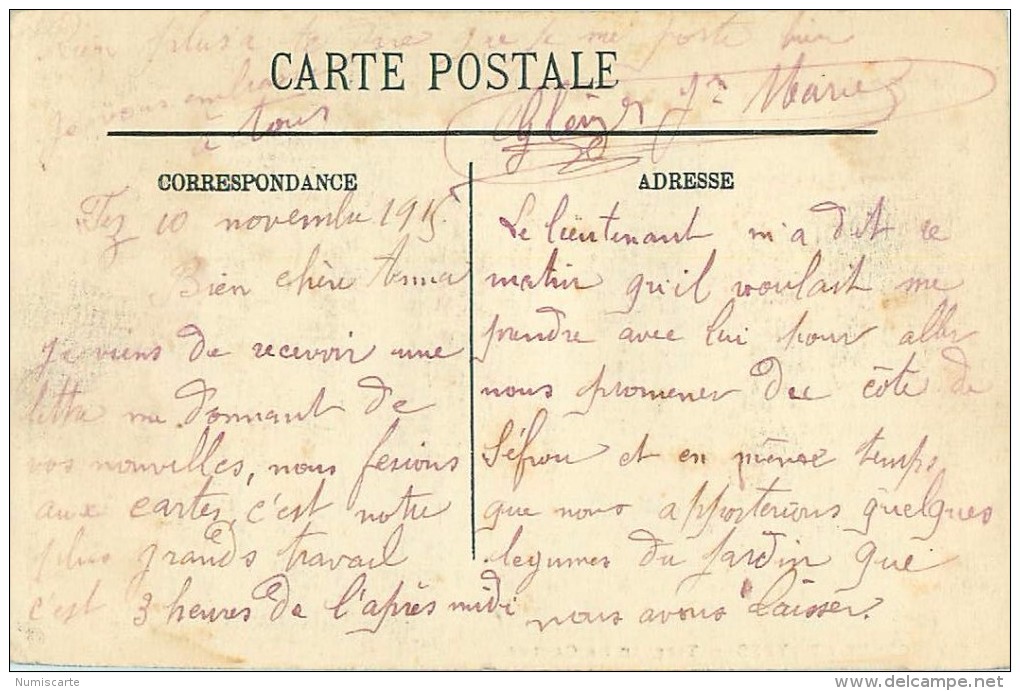 Rien plus a te dire que je me porte bien
Je vous embrasse
a tous
Jn Marie
CARTE POSTALE
CORRESPONDANCE
ADRESSE
Fez 10 novembre 1915
Bien chère Anna
Je viens de recevoir une
lettre me donnant de
vos nouvelles, nous fesions
aux cartes, c'est notre
plus grands travail
c'est 3 heures de l'après midi
Le lieutenant m'a dit ce
matin qu'il voulait me
prendre avec lui pour aller
nous promener du côte de
Séfrou et en même temps
que nous apporterions quelques
legumes du jardin que
nous avons laisser.
Numiscarte
delcampe.net